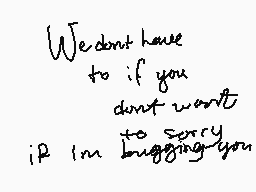 We dont have
to if you
dont want
to sorry
if Im bugging you